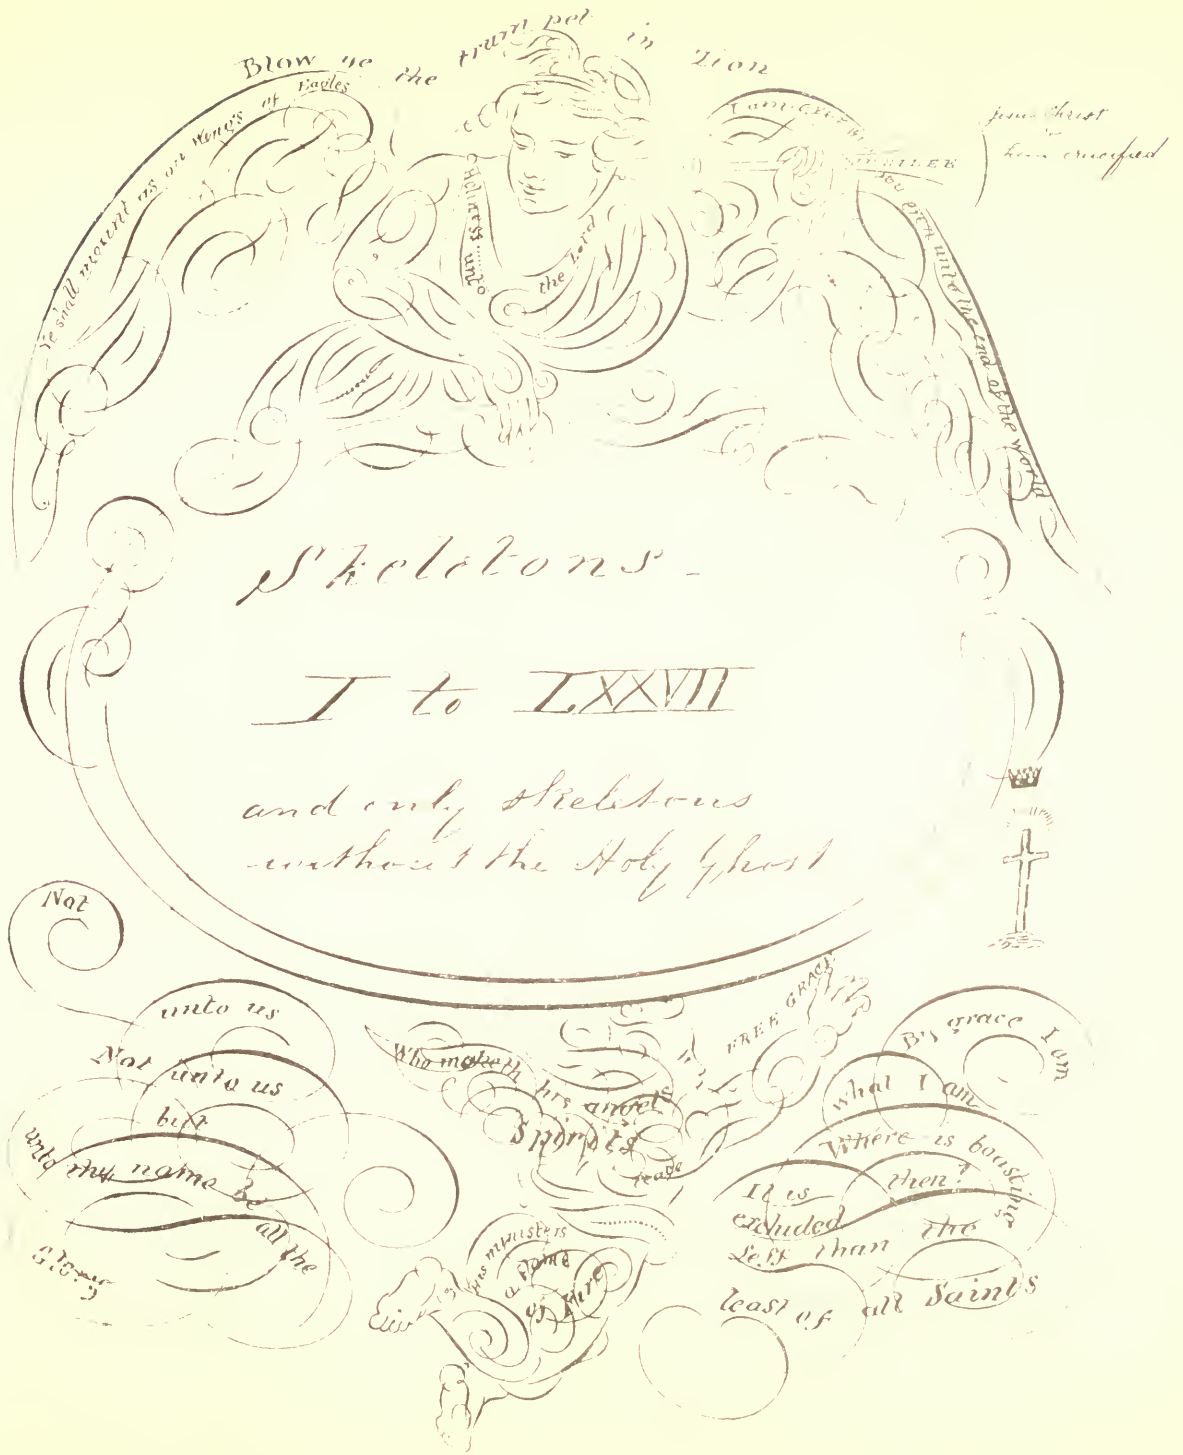 Blow ye the trumpet in Zion
Ye shall mount as on Wings of Eagles
Holiness unto
the Lord
I am
you even unto the end of the world
Christ
crucified
Skeletons -
I to LXXVII
and only skeletons
without the Holy Ghost
Not
unto us
Not unto us
but
unto thy name be
all the
Glory
Who maketh
his angels
Spirits
FREE GRACE
His ministers
a flame
of Fire
By grace I am
what I am
Where is boasting
then?
It is
excluded
Less than the
least of all Saints